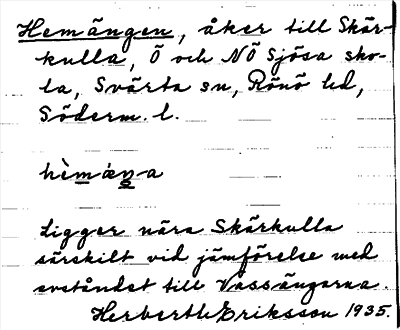 Hemängen, åker till Skär-
kulla, Ö och NÖ Sjösa sko-
la, Svärta sn, Rönö hd,
Söderm. l.
hèmæŋa
Ligger nära Skärkulla
särskilt vid jämförelse med
avståndet till Vassängarna.
Herberth Eriksson 1935.